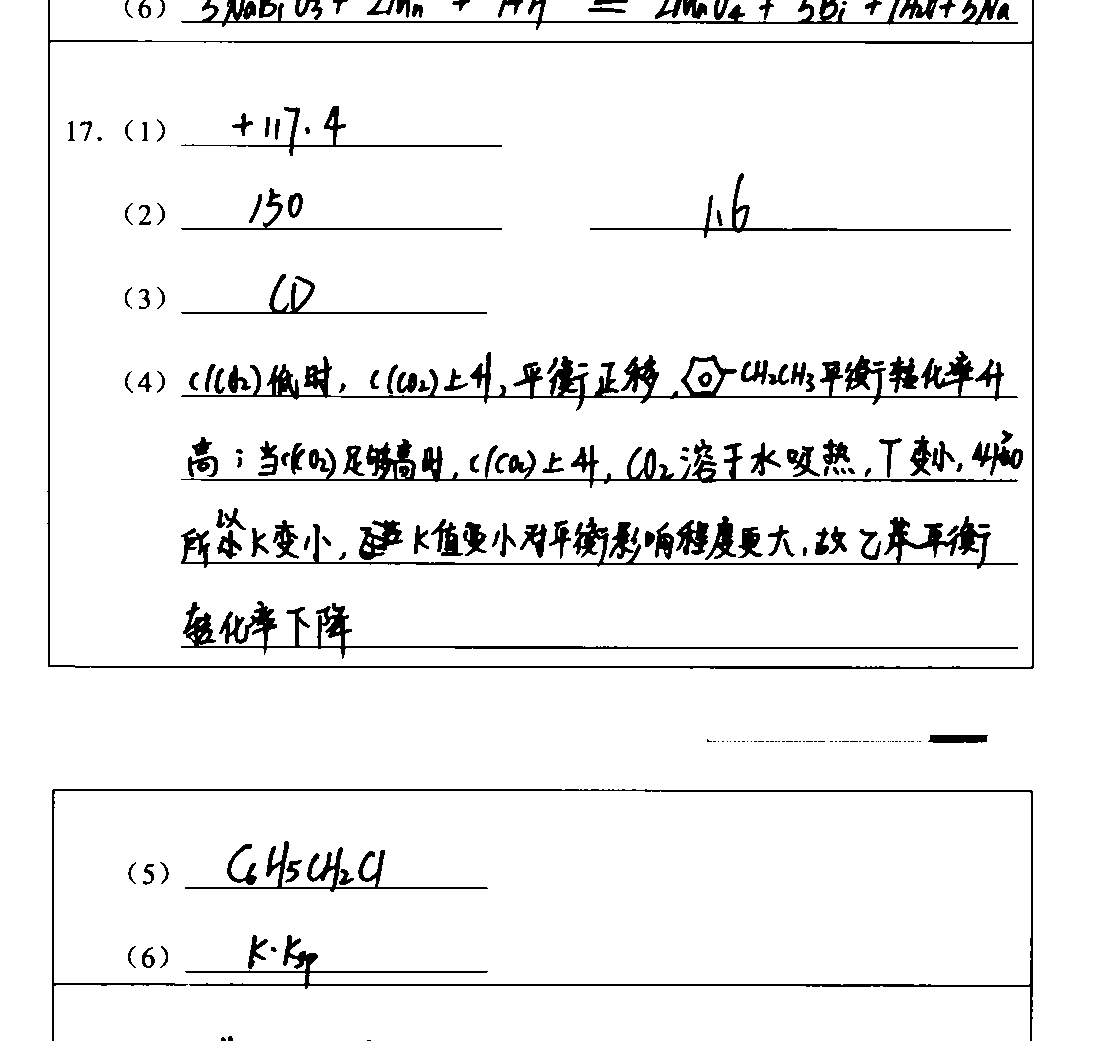 (6) 5NaBiO3 + 2Mn + 14H = 2MnO4 + 5Bi + 7H2O + 5Na
17. (1) +117.4
(2) 150 1.6
(3) CD
(4) c(CO2)低时，c(CO2)上升，平衡正移，-CH2CH3平衡转化率升
高；当c(CO2)足够高时，c(CO2)上升，CO2溶于水吸热，T变小，ΔH>0
所以K变小，K值变小对平衡影响程度更大，故乙苯平衡
转化率下降
(5) C6H5CH2Cl
(6) K·Ksp